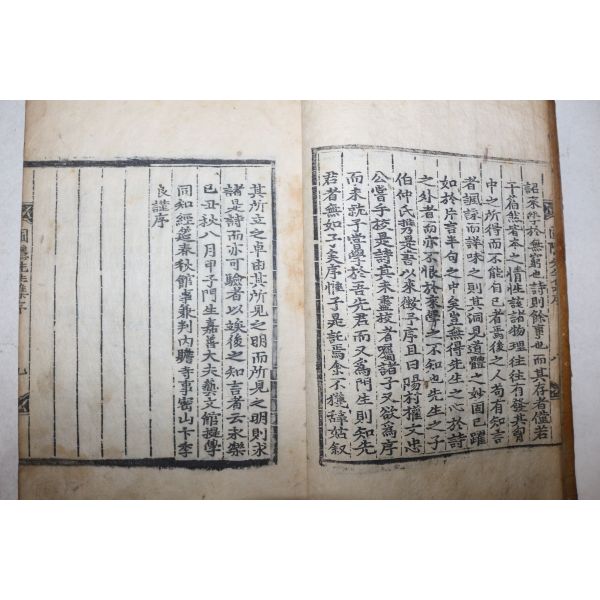 詔來學於無窮也詩則餘事也而其存者僅若
干篇然皆本之情性該諸物理往往有發其胷
中之所得而不能自已者焉後之人苟有知言
者諷詠而詳味之則其洞見道體之妙固已躍
如於片言半句之中矣豈無得先生之心於詩
之外者而亦不恨於來學之不知也先生之子
伯仲氏携是書以來徵予序且曰陽村權文忠
公嘗手校是詩眞未盡校者囑諸子又欲爲序
而未就子嘗學於吾先君而又爲門生則知先
君者無如子矣序惟子是託焉余不獲辞姑叙
其所立之卓由其所見之明而所見之明則求
諸是詩而亦可驗者以竢後之知言者云永樂
己丑秋八月甲子門生嘉善大夫藝文館提學
同知經筵春秋館事兼判內贍寺事密山卞季
良謹序
圃隱先生集序 九